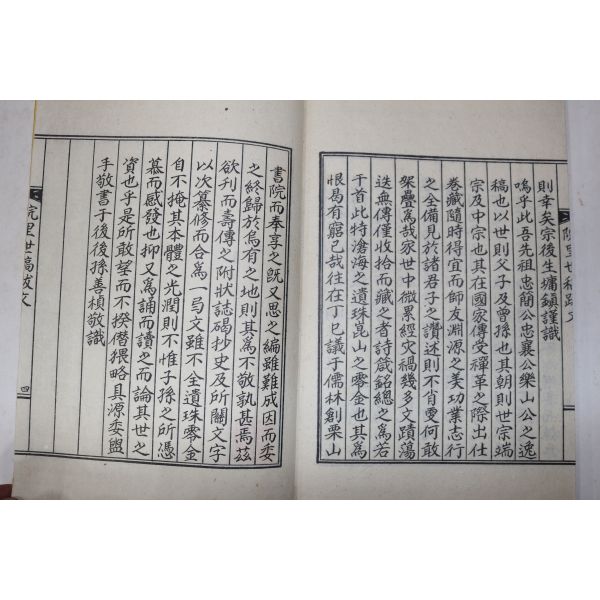 則幸矣宗後生墉鎭謹識
嗚乎此吾先祖忠簡公忠襄公樂山公之逸
稿也以世則父子及曾孫也其朝則世宗端
宗及中宗也其在國家傳受禪革之際出仕
卷藏隨時得宜而師友淵源之美功業志行
之全備見於諸君子之讚述則不肖更何敢
架疊爲哉家世中微累經灾禍幾多文蹟蕩
迭無傳僅收拾而藏之者詩箴銘總之爲若
干首此特滄海之遺珠昆山之零金也其爲
恨曷有窮已哉往在丁巳議于儒林創栗山
書院而奉享之旣又思之編雖難成因而委
之終歸於烏有之地則其爲不敬孰甚焉玆
欲刋而壽傳之附狀誌碣抄史及所關文字
以次纂修而合爲一弓文雖不全遺珠零金
自不掩其本體之光潤則不惟子孫之所憑
慕而感發也抑又爲誦而讀之而論其世之
資也乎是所敢望而不揆僭猥略具源委盥
手敬書于後後孫善楨敬識
院里世稿跋文
四